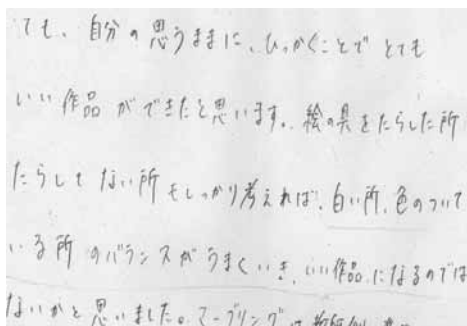 ても、自分の思うままに、ひっかくことでとても
いい作品ができたと思います。絵の具をたらした所
たらしてない所もしっかり考えれば、白い所、色のついて
いる所のバランスがうまくいき、いい作品になるのでは
ないかと思いました。マーブリングは